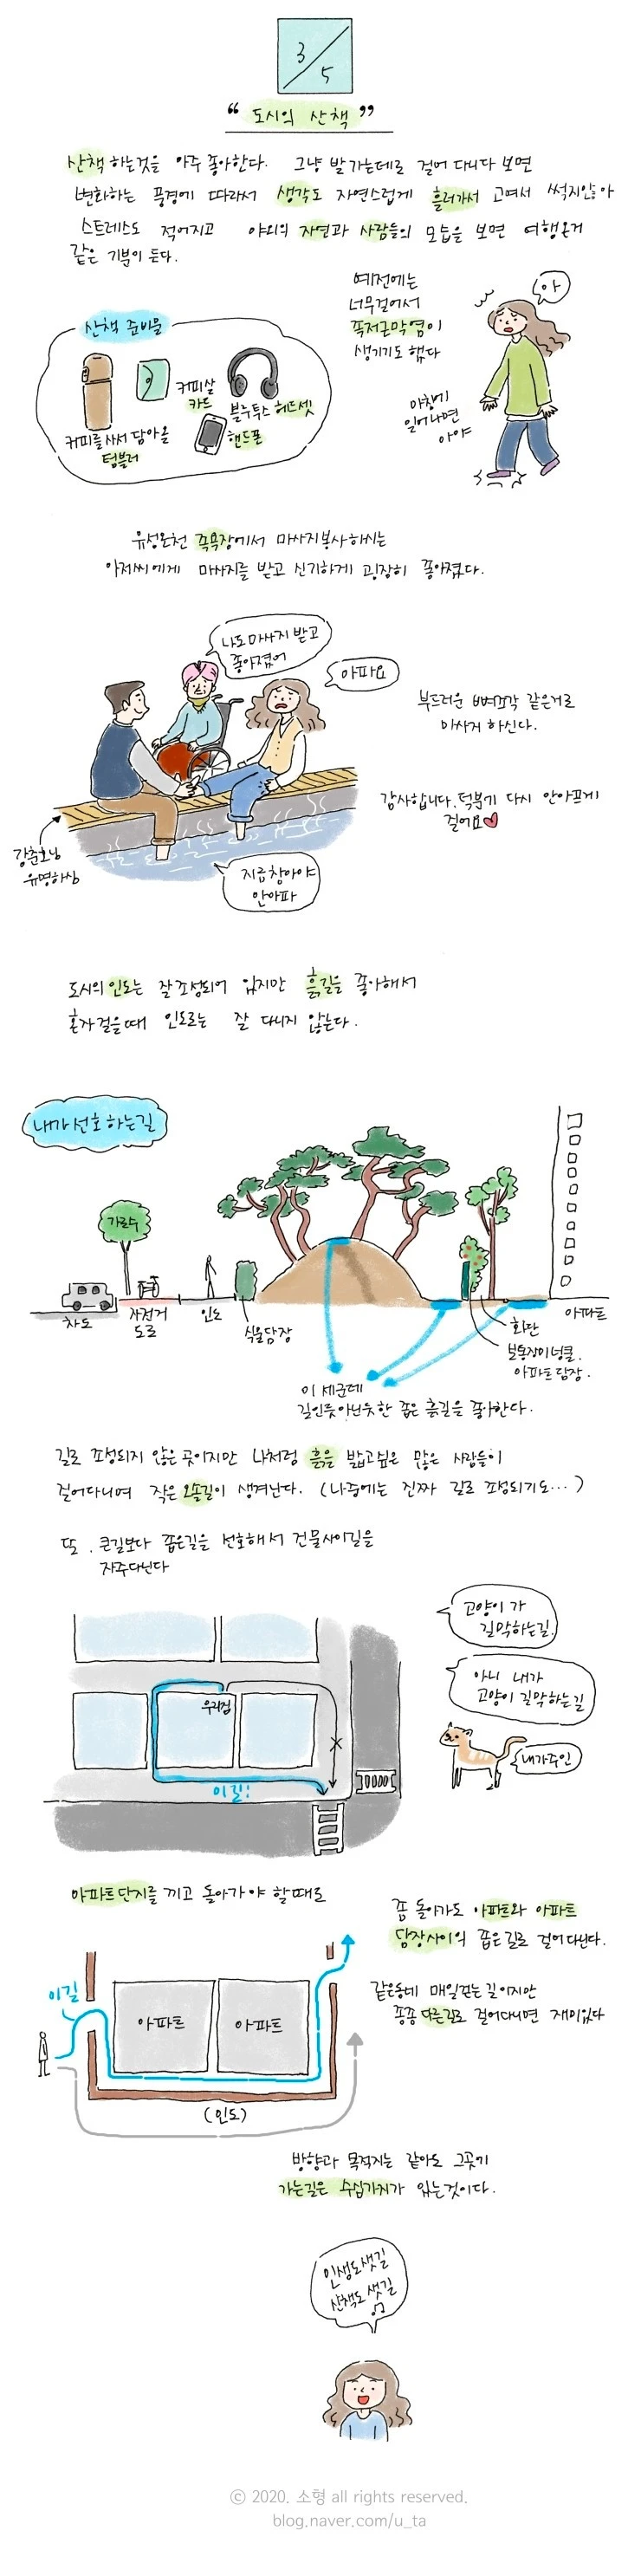 3/5
“도시의 산책”
산책 하는것을 아주 좋아한다. 그냥 발 가는데로 걸어 다니다 보면
변화하는 풍경에 따라서 생각도 자연스럽게 흘러가서 고여서 썩지않아
스트레스도 적어지고 야외의 자연과 사람들의 모습을 보면 여행온거
같은 기분이 든다.
예전에는
너무걸어서
족저근막염이
생기기도 했다
아
아침에
일어나면
아야
산책 준비물
커피를 사서 담아올
텀블러
커피살
카드
블루투스 헤드셋
핸드폰
유성온천 족욕장에서 마사지봉사하시는
아저씨에게 마사지를 받고 신기하게 굉장히 좋아졌다.
나도 마사지 받고
좋아졌어
아파요
부드러운 뼈조각 같은거로
마사지 하신다.
감사합니다. 덕분에 다시 안아프게
걸어요♥
강춘호님
유명하심
지금 참아야
안아파
도시의 인도는 잘 조성되어 있지만 흙길을 좋아해서
혼자걸을때 인도로는 잘 다니지 않는다.
내가 선호 하는길
가로수
차도
자전거
도로
인도
식물담장
화단
넝쿨.
아파트담장.
아파트
이 세군데
길인듯아닌듯한 좁은 흙길을 좋아한다.
길로 조성되지 않은 곳이지만 나처럼 흙을 밟고싶은 많은 사람들이
걸어다니며 작은 오솔길이 생겨난다. (나중에는 진짜 길로 조성되기도…)
또. 큰길보다 좁은길을 선호해서 건물사이길을
자주다닌다
우리집
이길!
고양이가
길막하는길.
아니 내가
고양이 길막하는길
내가주인
아파트단지를 끼고 돌아가야 할때도
좀 돌아가도 아파트와 아파트
담장사이의 좁은길로 걸어다닌다.
같은동네 매일걷는 길이지만
종종 다른길로 걸어다니면 재미있다
이길
아파트
아파트
(인도)
방향과 목적지는 같아도 그곳에
가는길은 수십가지가 있는것이다.
인생도샛길
산책도 샛길
♫
© 2020. 소형 all rights reserved.
blog.naver.com/u_ta